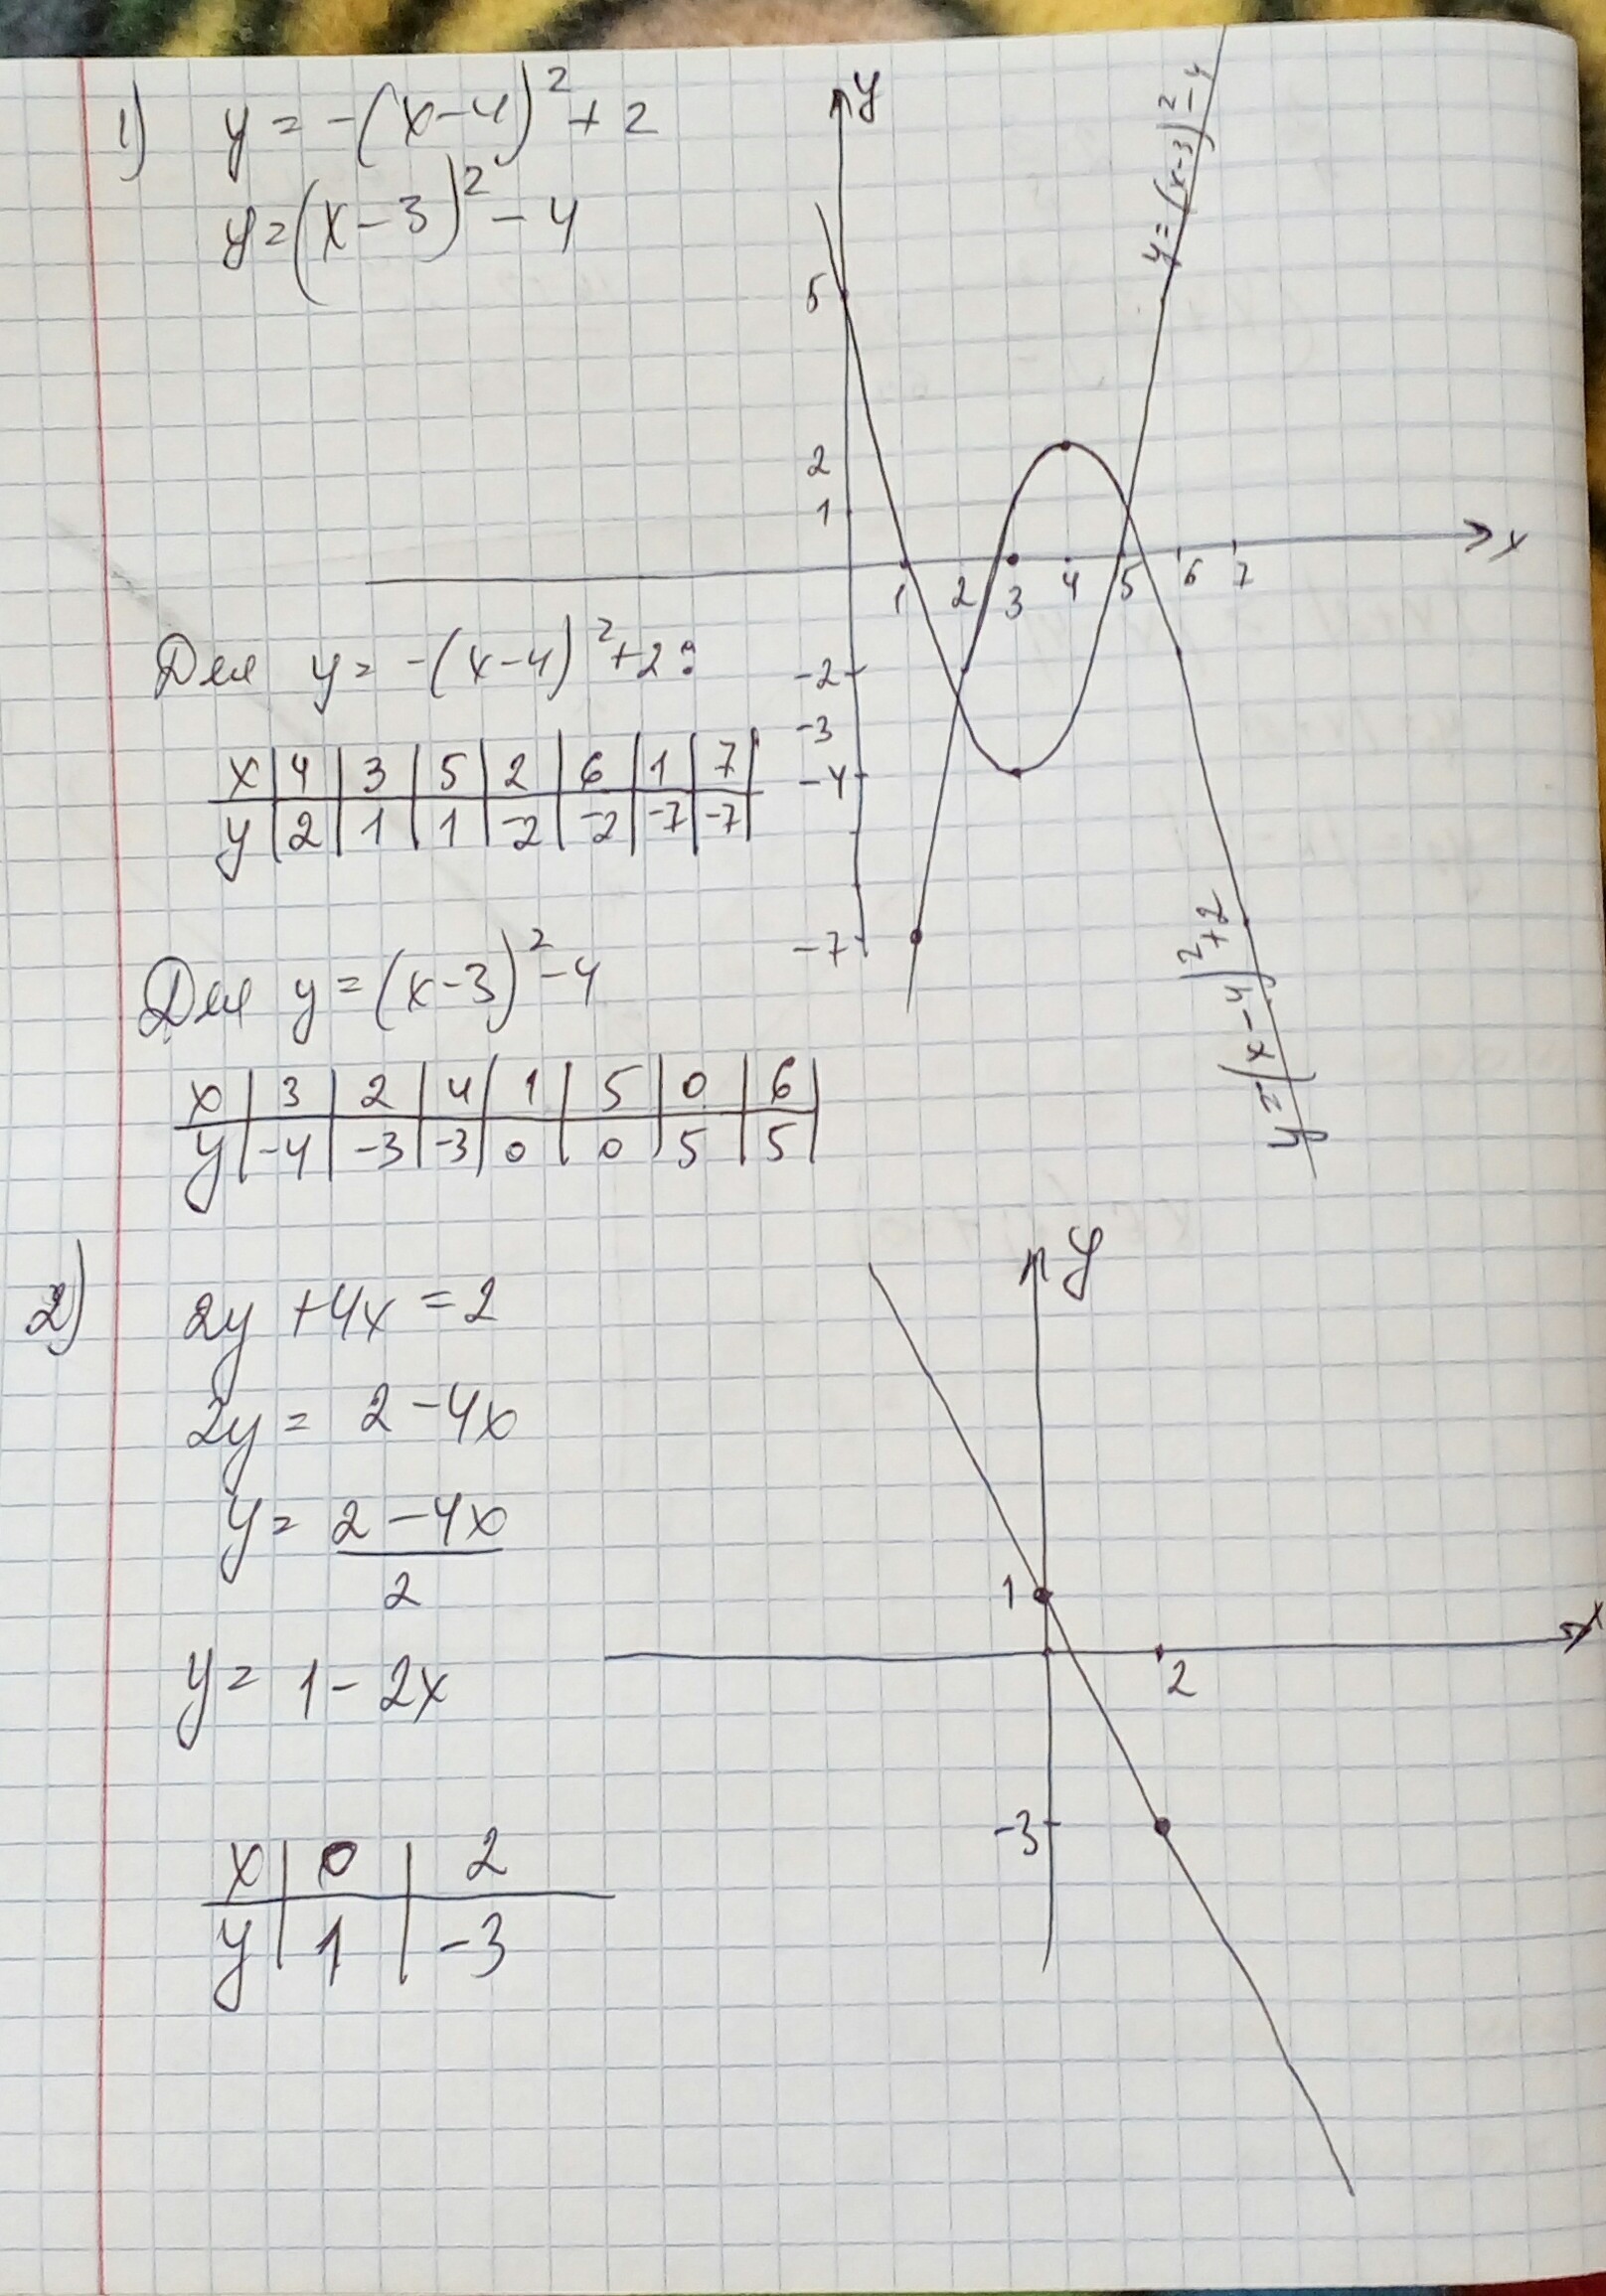 1) y = -(x-4)² + 2
y = (x-3)² - 4
Для y = -(x-4)² + 2:
x | 4 | 3 | 5 | 2 | 6 | 1 | 7 |
y | 2 | 1 | 1 | -2 | -2 | -7 | -7 |
Для y = (x-3)² - 4
x | 3 | 2 | 4 | 1 | 5 | 0 | 6 |
y | -4 | -3 | -3 | 0 | 0 | 5 | 5 |
y
5
2
1
1 2 3 4 5 6 7
x
-2
-3
-4
-7
y = (x-3)² - 4
y = -(x-4)² + 2
2) 2y + 4x = 2
2y = 2 - 4x
y = 2 - 4x
2
y = 1 - 2x
x | 0 | 2
y | 1 | -3
y
1
2
x
-3